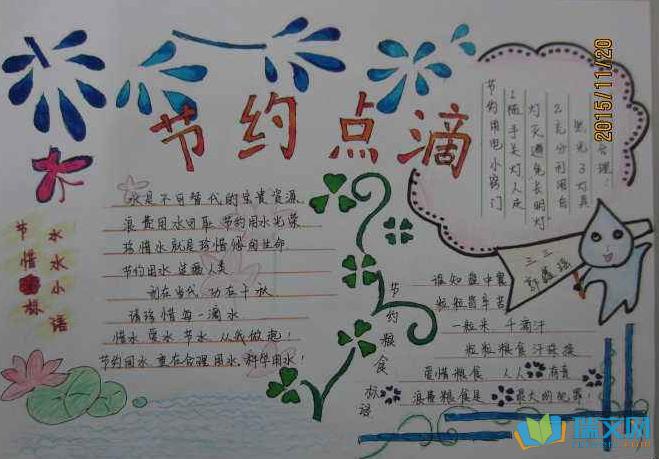 节约点滴
2015/11/20
节约用电小窍门
1随手关灯人走
灯灭避免长明灯
2充分利用自
然光3灯具
节水
惜水
标语
水是不可替代的宝贵资源
浪费用水可耻 节约用水光荣
珍惜水就是珍惜你的生命
节约用水 造福人类
利在当代 功在千秋
请珍惜每一滴水
惜水 爱水 节水 从我做起！
节约用水 重在合理用水 科学用水！
节约粮食标语
谁知盘中餐
粒粒皆辛苦
一粒米 千滴汗
粒粒粮食汗珠换
爱惜粮食 人人有责
浪费粮食是最大的犯罪！
三三
瑞文网